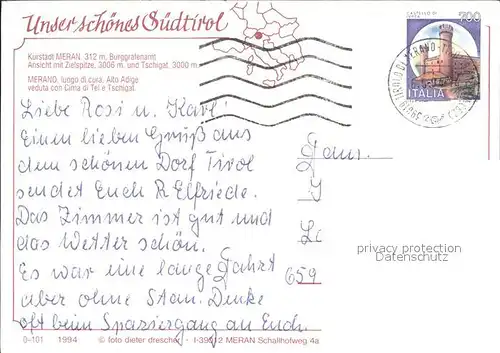 Unser schönes Südtirol
Kurstadt MERAN 312 m, Burggrafenamt
Ansicht mit Zielspitze, 3006 m. und Tschigat, 3000 m.
MERANO, luogo di cura, Alto Adige
veduta con Cima di Tel e Tschigat.
700
ITALIA
Liebe Rosi u. Karl!
Einen lieben Gruß aus
dem schönen Dorf Tirol
sendet Euch R Elfriede.
Das Zimmer ist gut und
das Wetter schön.
Es war eine lange Fahrt
aber ohne Stau. Denke
oft beim Spaziergang an Euch.
Fam.
659
privacy protection
Datenschutz
0-101 1994 © foto dieter drescher I-39012 MERAN Schallhofweg 4a